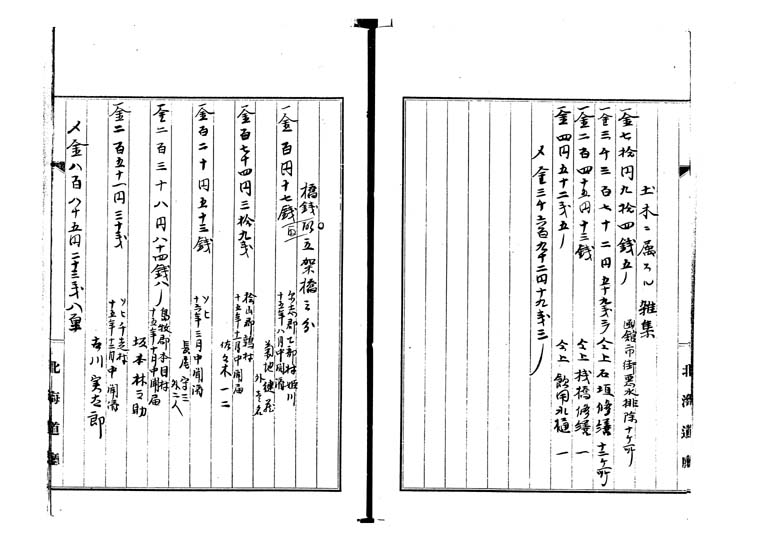 土木ニ属スル雑集
一金七拾円九拾四銭五リ 函館市街悪水排除十ケ所
一金三千三百七十二円五十九銭三リ 仝上石垣修繕十三ケ所
一金二百四十五円十三銭 仝上桟橋修繕一
一金四円五十二銭五リ 仝上飲用水樋一
〆金三千六百九十二円十九銭三リ
橋銭取立架橋之分
一金百円十七銭 郡乙部村姫川
十五年八月中開済
菊地 外壱名
一金百七十四円三拾九銭 桧山郡 村
十五年十一月中開届
佐々木一二
一金百二十円五十三銭 ソヒ
十六年三月中開済
長尾守三
外二人
一金二百三十八円八十四銭八リ 島牧郡本目村
十五年十月中開届
坂本林之助
一金二百五十一円三十銭 ソヒ千走村
十五年十二月中開済
古川寅太郎
〆金八百八十五円二十三銭八厘
北海道庁
北海道庁